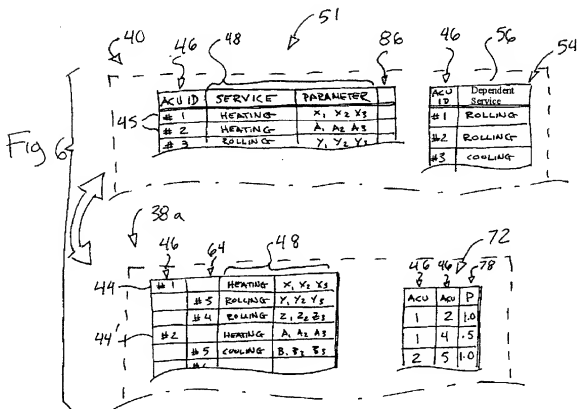 51
40 46 48 86 46 56 54
ACU ID SERVICE PARAMETER
45
# 1 HEATING X, X2 X3
# 2 HEATING A, A2 A3
# 3 ROLLING Y, Y2 Y3
ACU ID Dependent Service
#1 ROLLING
#2 ROLLING
#3 COOLING
Fig 6
38a
46 64 48
44
#1 HEATING X, X2 X3
#5 ROLLING Y, Y2 Y3
#4 ROLLING Z, Z2 Z3
44'
#2 HEATING A, A2 A3
#5 COOLING B, B2 B3
46 46 72 78
ACU ACU P
1 2 1.0
1 4 .5
2 5 1.0